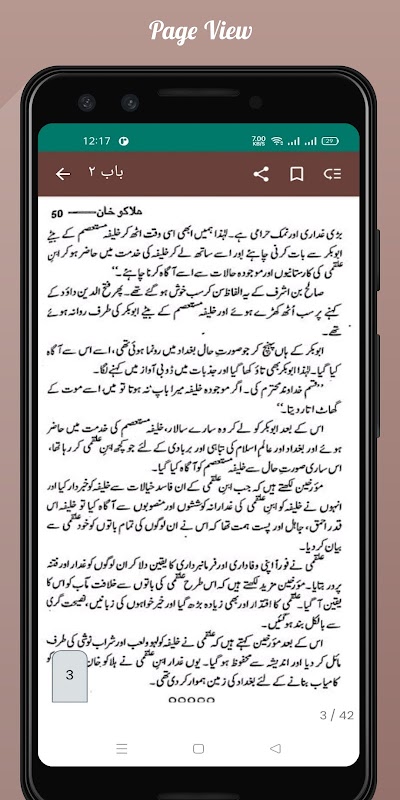 Page View
12:17
7.00 KB/S
29
باب ۲
ہلاکو خان —— 50
بڑی غداری اور نمک حرامی ہے۔ لہٰذا ہمیں ابھی اسی وقت اٹھ کر خلیفہ مستعصم کے بیٹے
ابوبکر سے بات کرنی چاہئے اور اسے ساتھ لے کر خلیفہ کی خدمت میں حاضر ہو کر ابنِ
علقمی کی کارستانیوں اور موجودہ حالات سے اسے آگاہ کرنا چاہئے۔‘‘
صالح بن اشرف کے یہ الفاظ سن کر سب خوش ہو گئے تھے۔ پھر فتح الدین داؤد کے
کہنے پر سب اُٹھ کھڑے ہوئے اور خلیفہ مستعصم کے بیٹے ابوبکر کی طرف روانہ ہوئے
تھے۔
ابوبکر کے ہاں پہنچ کر جو صورتِ حال بغداد میں رونما ہوئی تھی، اسے اس سے آگاہ
کیا گیا۔ لہٰذا ابوبکر بھی تاؤ کھا گیا اور جذبات میں ڈوبی آواز میں کہنے لگا۔
’’قسم خداوند محترم کی۔ اگر موجودہ خلیفہ میرا باپ نہ ہوتا تو میں اسے موت کے
گھاٹ اتار دیتا۔‘‘
اس کے بعد ابوبکر کو لے کر وہ سارے سالار، خلیفہ مستعصم کی خدمت میں حاضر
ہوئے اور بغداد اور عالمِ اسلام کی تباہی اور بربادی کے لئے جو کچھ ابنِ علقمی کر رہا تھا،
اس ساری صورتِ حال سے خلیفہ مستعصم کو آگاہ کیا گیا۔
مؤرخین لکھتے ہیں کہ جب ابنِ علقمی کے ان فاسد خیالات سے خلیفہ کو خبردار کیا اور
انہوں نے خلیفہ کو ابنِ علقمی کی غدارانہ کوششوں اور منصوبوں سے آگاہ کیا تو خلیفہ اس
قدر احمق، جاہل اور پست ہمت تھا کہ اس نے ان لوگوں کی تمام باتوں کو خود علقمی سے
بیان کر دیا۔
علقمی نے فوراً اپنی وفاداری اور فرمانبرداری کا یقین دلا کر ان لوگوں کو غدار اور فتنہ
پرور بتایا۔ مؤرخین مزید لکھتے ہیں کہ اس طرح علقمی کی باتوں سے خلافت مآب کو اس کا
یقین آ گیا۔ علقمی کا اقتدار اور بھی زیادہ بڑھ گیا اور خیر خواہوں کی زبانیں، نصیحت گری
سے بالکل بند ہو گئیں۔
اس کے بعد مؤرخین کہتے ہیں کہ علقمی نے خلیفہ کو لہو و لعب اور شراب نوشی کی طرف
مائل کر دیا اور اندیشہ سے محفوظ ہو گیا۔ یوں غدار ابنِ علقمی نے ہلاکو خان
کامیاب بنانے کے لئے بغداد کی زمین ہموار کر دی تھی۔
3
3 / 42